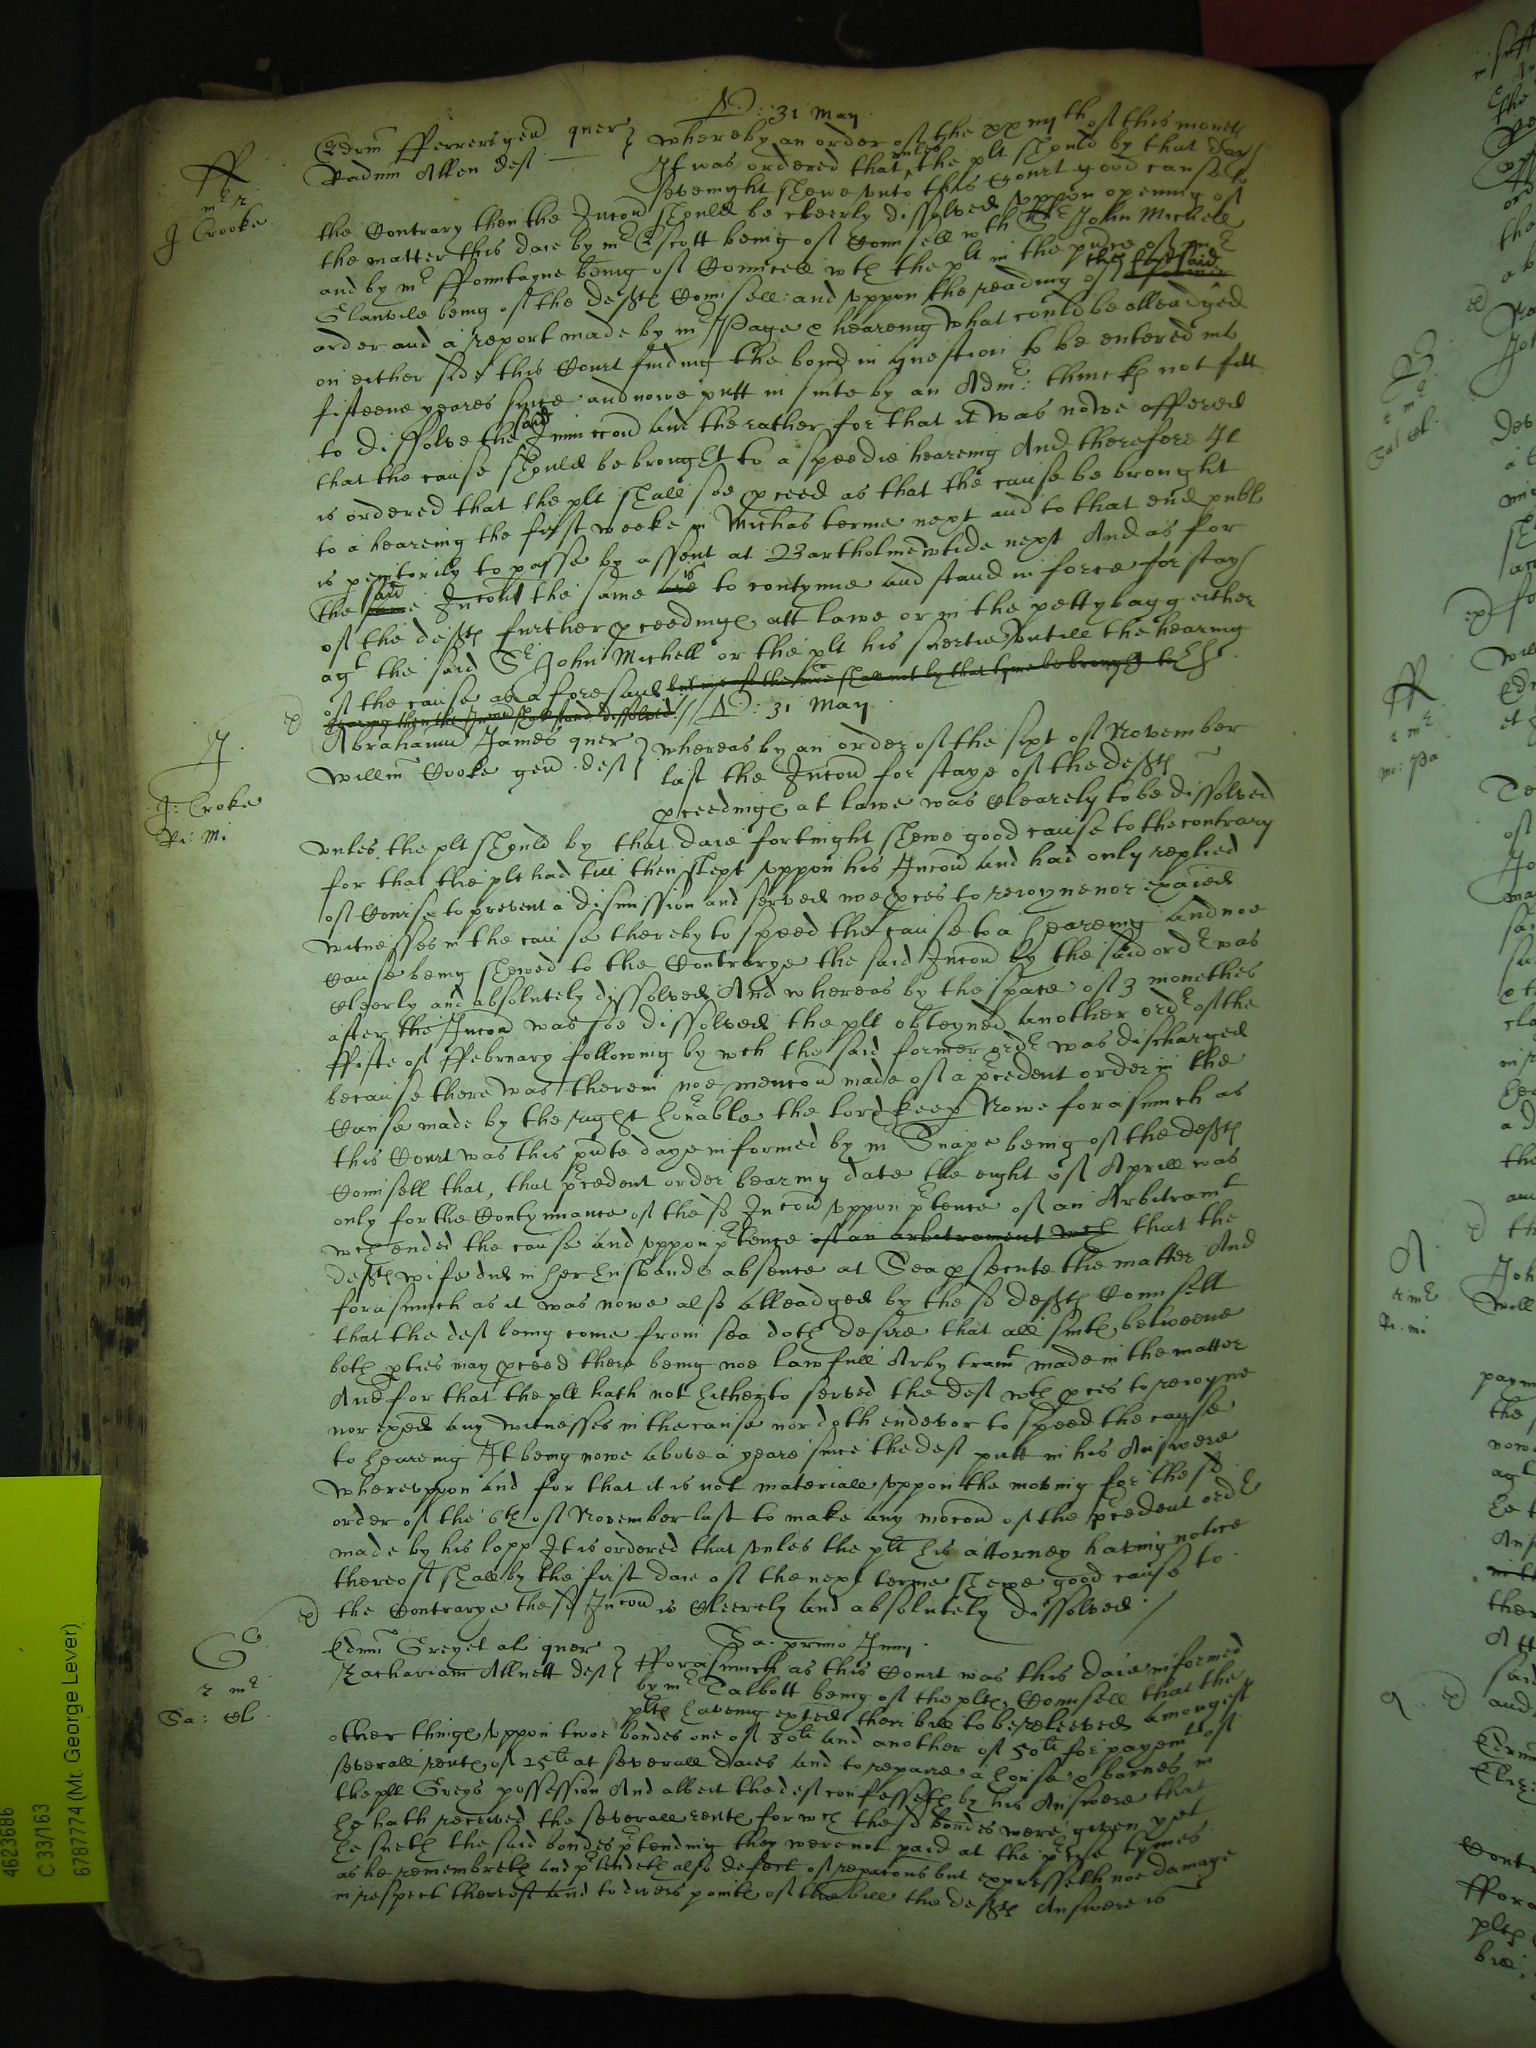 D: 31 May
ff
mr r
J Crooke
Edrum fferrers gen quer
Radum Allen deft
whereby an order of the xxiiijth of this moneth
It was ordered that unles the plt should by that day
sevenight shewe unto this Court good cause to
the Contrary then the Iniuncon should be cleerly dissolved uppon opening of
the matter this daie by mr Escott being of Counsell wth Sr John Michell
and by mr ffountayne being of Councell wth the plt in the pnce of mr
Glanvile being of the defts Counsell and uppon the reading of the foresaid
order and a report made by mr Page & hearing what could be alleadged
on either side this Court finding the bond in question to be entered into
fifteene yeares since and nowe putt in suite by an Admr: thinck not fitt
to dissolve the said Iniunccon and the rather for that it was nowe offered
that the cause should be brought to a speedie hearing And therefore It
is ordered that the plt shall soe pceed as that the cause be brought
to a hearing the first weeke in Michas terme next and to that end publ
is pemtorily to passe by assent at Bartholmewtide next And as for
the said Iniuncon the same is to contynue and stand in force for stay
of the defts further pceedings att lawe or in the pettybagg either
agt the said Sr John Michell or the plt his suertie untill the hearing
of the cause as aforesaid but in case the same shall not by that tyme be brought to
hearing then the Iniuncon shall stand dissolved //
D: 31 May
J
J: Croke
Ri: Mi
Abrahamu James quer
Willm Cooke gen deft
whereas by an order of the sixt of November
last the Iniuncon for staye of the defts
pceedings at lawe was clearely to be dissolved
unles the plt should by that daie fortnight shewe good cause to the contrary
for that the plt had till then slept uppon his Iniuncon and had only replied
of Course to prevent a dismission and served noe pces to reioyne nor exaied
witnesses in the cause thereby to speed the cause to a hearing And noe
cause being shewed to the Contrarye the said Iniuncon by the said ordr was
cleerly and absolutely dissolved And whereas by the space of 3 monethes
after the Iniuncon was soe dissolved the plt obteyned another ordr of the
ffifte of ffebruary following by wch the said former ordr was discharged
because there was therein noe mencon made of a precedent order in the
Cause made by the right honable the lord keep Nowe forasmuch as
this Court was this pnte daye informed by mr Snape being of the defts
Counsell that, that precedent order bearing date the eight of Aprill was
only for the Contynuance of the sd Iniuncon uppon ptence of an Arbitramt
wch ended the cause and uppon ptence of an arbitrament wch that the
defts wife did in her husbands absence at Sea psecute the matter And
forasmuch as it was nowe also alleadged by the sd defts Counsell
that the deft being come from sea doth desire that all suites betweene
both pties may pceed there being noe lawfull Arbytramt made in the matter
And for that the plt hath not hitherto served the deft wth pces to reioyne
nor exaied any witnesses in the cause nor doth endevor to speed the cause
to hearing It being nowe above a yeare since the deft putt in his Answere
whereuppon and for that it is not materiall uppon the moving for the sd
order of the 6th of November last to make any mocon of the precedent ordr
made by his lopp It is ordered that unles the plt his attorney having notice
thereof shall by the first daie of the next terme shewe good cause to
the Contrarye the sd Iniuncon is cleerely and absolutely dissolved /
Sa: primo Juny
G
r mr
Sa: Cl
Edmu Grey et al quer
Zachariam Allnett deft
fforasmuch as this Court was this daie informed
by mr Talbott being of the plts Counsell that the
plts having exted their bill to be releeved amongest
other things uppon twoe bondes one of 80li and another of 50li for paymt of
severall rents of 25li at severall daies and to repaire a house & barnes in
the plt Greys possession And albeit the deft confesseth by his Answere that
he hath received the severall rents for wch the sd bondes were given yet
he sueth the said bondes ptending they were not paid at the pcise tymes
as he remembreth and ptendeth also defect of repacons but expresseth noe damage
in respect thereof And to divers points of the bill the defts Answere is
4623686
C 33/163
6787774 (Mt. George Lever)